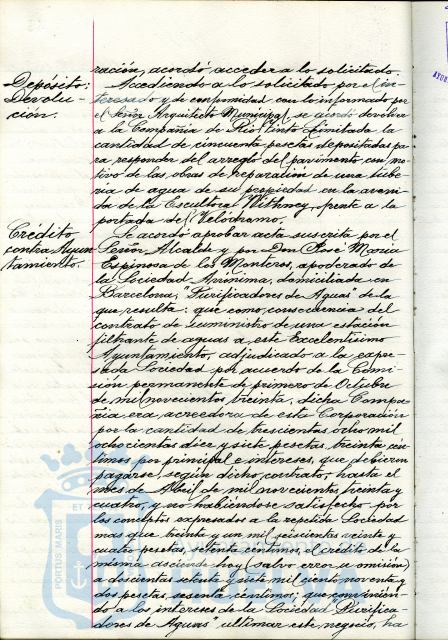 ración, acordó acceder a lo solicitado.
Depósito:
Devolu-
ción.
Accediendo a lo solicitado por el in-
teresado y de conformidad con lo informado por
el Señor Arquitecto Municipal, se acordó devolver
a la Compañía de Rio-Tinto Limitada la
cantidad de cincuenta pesetas depositadas pa-
ra responder del arreglo del pavimento con mo-
tivo de las obras de reparación de una tube-
ria de agua de su propiedad en la aveni-
da de la Escultora Withney, frente a la
portada del Velódromo.
Crédito
contra Ayun-
tamiento.
Se acordó aprobar acta suscrita por el
Señor Alcalde y por Don José Maria
Espinosa de los Monteros, apoderado de
la Sociedad Anónima, domiciliada en
Barcelona, "Purificadores de Aguas" de la
que resulta: que como consecuencia del
contrato de suministro de una estación
filtrante de aguas a este Excelentísimo
Ayuntamiento, adjudicado a la expre-
sada Sociedad por acuerdo de la Comi-
sión permanente de primero de Octubre
de mil novecientos treinta, dicha Compa-
ñia era acreedora de esta Corporación
por la cantidad de trescientas ocho mil
ochocientas diez y siete pesetas, treinta cén-
timos por principal e intereses, que debieron
pagarse, según dicho contrato, hasta el
mes de Abril de mil novecientos treinta y
cuatro, y no habiéndose satisfecho por
los conceptos expresados a la repetida Sociedad
mas que treinta y un mil seiscientas veinte y
cuatro pesetas, setenta céntimos, el crédito de la
misma asciende hoy (salvo error u omisión)
a doscientas setenta y siete mil ciento noventa y
dos pesetas, sesenta céntimos; que convinien-
do a los intereses de la Sociedad "Purifica-
dores de Aguas" ultimar este negocio, ha
PORTUS MARIS
ET